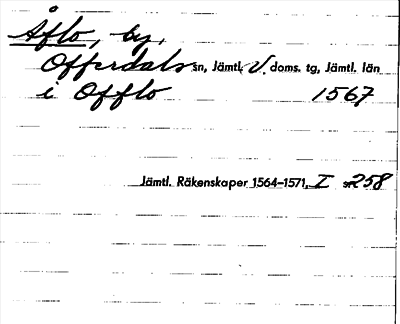 Åflo, by,
Offerdals sn, Jämtl. V. doms. tg, Jämtl. län
i Offlo 1567
Jämtl. Räkenskaper 1564-1571, I s. 258